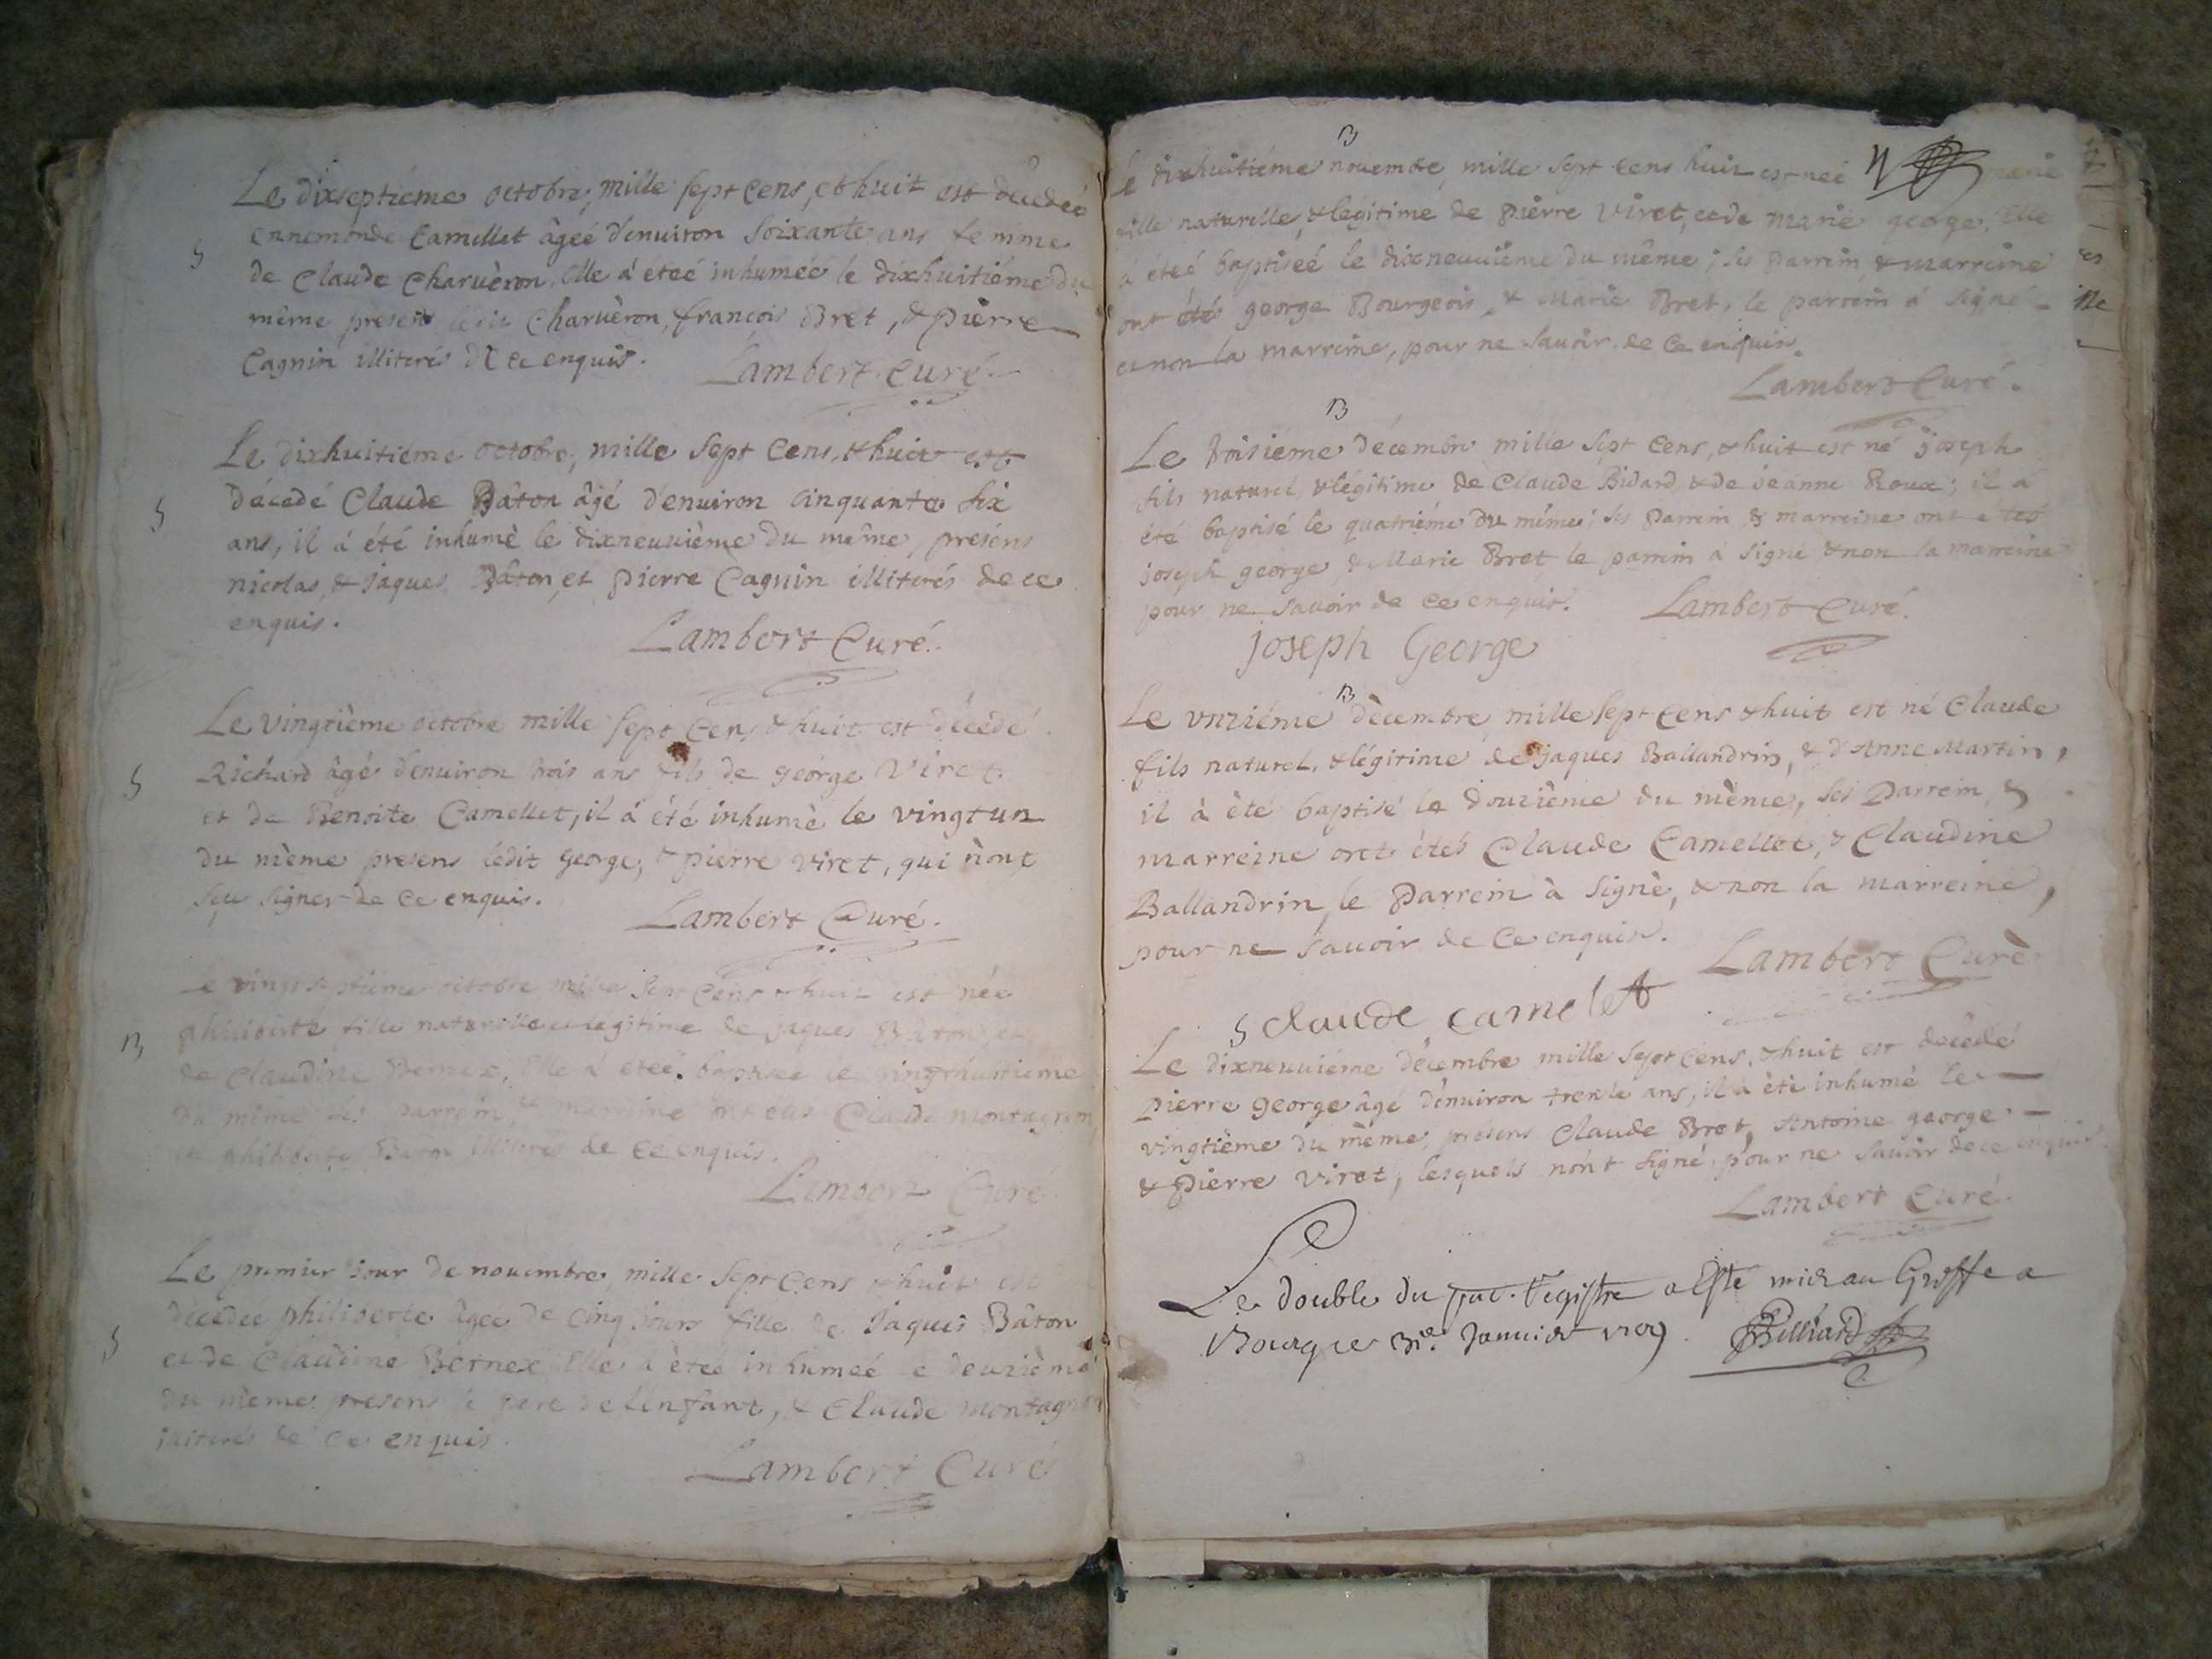 Le dixseptiéme octobre, mille sept cens, et huit est décedeé
ennemonde Camellet âgeé d'enuiron soixante ans femme
S
de Claude Charuèron, elle a éteé inhumeé le dixhuitiéme du
même presens ledit Charuèron, françois Bret, & pièrre
Cagnin illiterés de ce enquis.
Lambert Curé.
Le dixhuitiéme octobre, mille sept cens, & huit est
décedé Claude Bâton âgé d'enuiron cinquante six
S
ans, il á été inhumè le dixneuuième du même, présens
nicolas, & jaques Bâton, et pierre Cagnin illiterés de ce
enquis.
Lambert Curé.
Le vingtième octobre mille sept cens & huit est décedé
Richard âgé d'enuiron trois ans fils de george Viret
S
et de Benoite Camellet, il á été inhumè le vingt un
du mème presens ledit george, & pierre viret, qui n'ont
sçu signer de ce enquis.
Lambert Curé.
Le vingtseptiéme octobre mille sept cens & huit est née
philiberte fille naturelle et legitime de jaques Bâton et
B
de Claudine Bernex, elle a éteé baptiseé le vingthuitiéme
du même ses parrein & marreine ont etés Claude montagnin
et philiberte Bâton illiterés de ce enquis.
Lambert Curé
Le premier jour de nouembre, mille sept cens & huit est
décedeé philiberte âgeé de cinq jours fille de Jaques Bâton
S
et de Claudine Bernex elle á èteé inhumeé le deuzième
du mème presens le pere de l'enfant, & Claude montagnin
illiterés de ce enquis.
Lambert Curé
B
Le dixhuitiéme nouembre, mille sept cens huit est neé marie
fille naturelle, & légitime de pièrre viret, et de marie george. elle
á éteé baptiseé le dixneuuième du même; ses parrein & marreine
ont étés george Bourgeois, & Marie Bret, le parrein á signé
et non la marreine, pour ne sauoir de ce enquis.
Lambert Curé.
B
Le troisiéme décembre mille sept cens, & huit est né joseph
fils naturel, & légitime de Claude Bidard & de jeanne Roux; il á
été baptisé le quatriéme du même; ses parrein & marreine ont étés
joseph george, & Marie Bret, le parrein á signé & non la marreine
pour ne sauoir de ce enquis.
Lambert Curé.
joseph George
B
Le vnziéme dècembre, mille sept cens & huit est né Claude
fils naturel, & légitime de jaques Ballandrin, & d'Anne Martin,
il à èté baptisé le douzième du mème, ses parrein &
marreine ont étés Claude Camellet, & Claudine
Ballandrin, le parrein à signè, & non la marreine,
pour ne sauoir de ce enquis.
Lambert Curè
S
claude camelet
Le dixneuuiéme décembre mille sept cens, & huit est decédé
pierre george âgé d'enuiron trente ans, il á èté inhumé le
vingtième du mème, presens Claude Bret, Antoine george
& pierre viret, lesquels n'ont signé, pour ne sauoir de ce enquis
Lambert Curé.
Le double du registre a Este mis au Greffe a
Bourg ce 31e Januier 1709.
Billiard